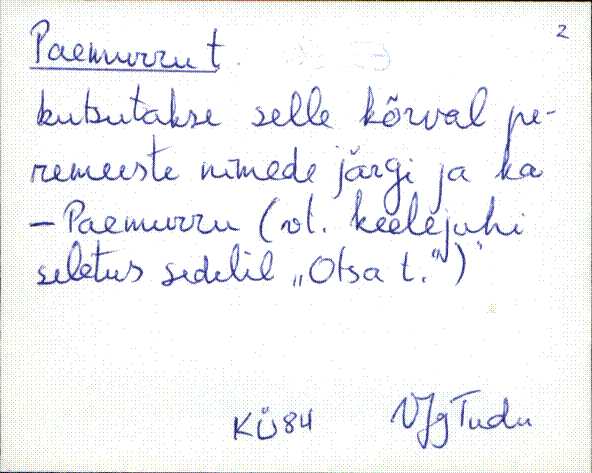 2
Paemurru t.
kutsutakse selle kõrval pe-
remeeste nimede järgi ja ka
– Paemurru (vt. keelejuhi
seletus sedelil „Otsa t.")
KÜ84 VJg Tudu